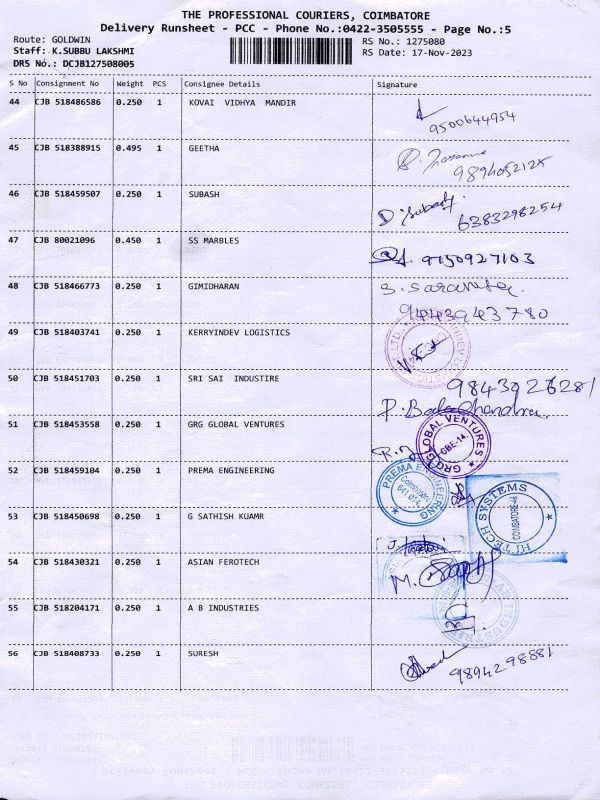 THE PROFESSIONAL COURIERS, COIMBATORE
Delivery Runsheet - PCC - Phone No.:0422-3505555 - Page No.:5
Route: GOLDWIN
Staff: K.SUBBU LAKSHMI
DRS No.: DCJB127508005
RS No.: 1275080
RS Date: 17-Nov-2023
S No Consignment No Weight PCS Consignee Details Signature
44 CJB 518486586 0.250 1 KOVAI VIDHYA MANDIR
9500644954
45 CJB 518388915 0.495 1 GEETHA
46 CJB 518459507 0.250 1 SUBASH D. Subash
6383298254
47 CJB 80021096 0.450 1 SS MARBLES 9150927103
48 CJB 518466773 0.250 1 GIMIDHARAN
9443943780
49 CJB 518403741 0.250 1 KERRYINDEV LOGISTICS
50 CJB 518451703 0.250 1 SRI SAI INDUSTIRE
P. Bala Chandra
51 CJB 518453558 0.250 1 GRG GLOBAL VENTURES
GRG GLOBAL VENTURES
CBE-14.
52 CJB 518459104 0.250 1 PREMA ENGINEERING
PREMA ENGINEERING
Coimbatore
641 014
HI TECH SYSTEMS
COIMBATORE-48
53 CJB 518450698 0.250 1 G SATHISH KUAMR
54 CJB 518430321 0.250 1 ASIAN FEROTECH
55 CJB 518204171 0.250 1 A B INDUSTRIES
56 CJB 518408733 0.250 1 SURESH
9894298881